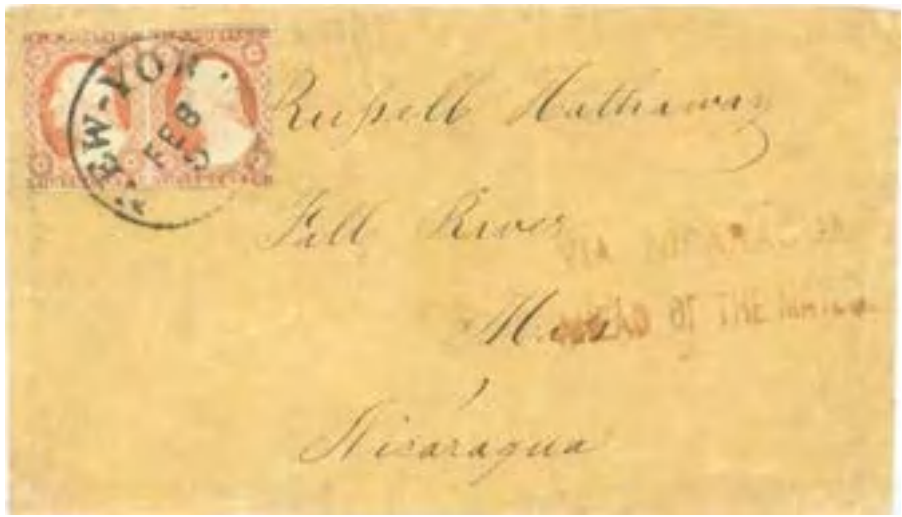 EW-YOR
FEB
Russell Hathaway
Fall River
VIA NICARAGUA
AHEAD OF THE MAILS.
Mass
Nicaragua